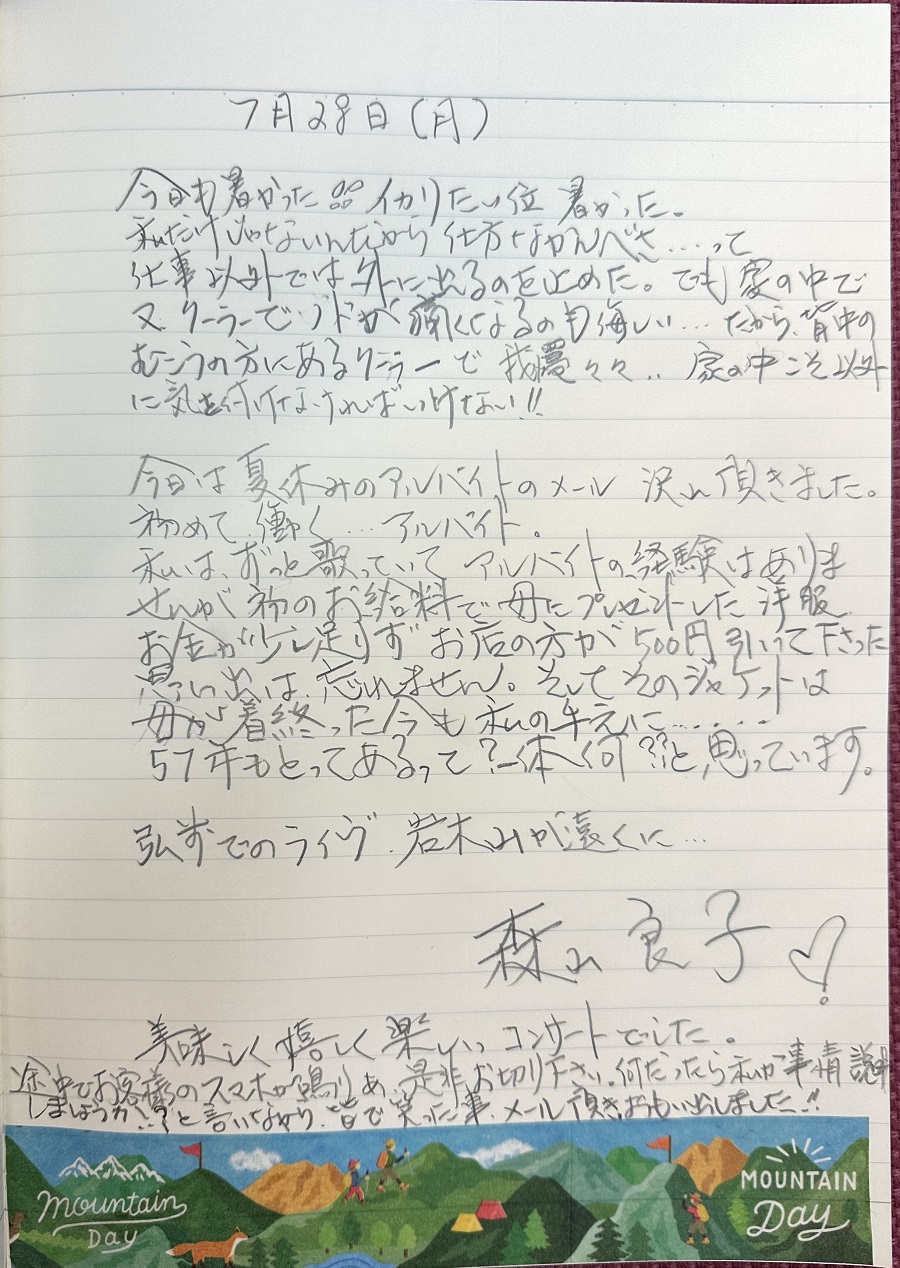 7月28日(月)
今日も暑かった イカリたい位 暑かった。
私だけじゃないんだから 仕方なかんべさ…って
仕事以外では外に出るのを止めた。でも 家の中で
又 クーラーで ノドが 痛くなるのも悔しい… だから、背中の
むこうの方にあるクーラーで 我慢々々.. 家の中こそ以外
に気を付けなければいけない!!
今日は夏休みのアルバイトのメール 沢山頂きました。
初めて 働く…アルバイト。
私は、ずっと歌っていて アルバイトの経験はありま
せんが 初のお給料で 母にプレゼントした 洋服
お金が少し足りず お店の方が 500円 引いて下さった
思い出は、忘れません。そして そのジャケットは
母が着終った今も 私の手元に......
57年もとってあるって?一体何??と思っています。
弘前でのライヴ. 岩木山が遠くに…
森山良子
美味しく 嬉しく 楽しい コンサートでした。
途中でお客様のスマホが鳴り あ、是非お切り下さい。何だったら私が事情説明
しましょうか!?と言いながら、皆で笑った事、メール頂きおもい出しました..!!
mountain
DAY
MOUNTAIN
Day